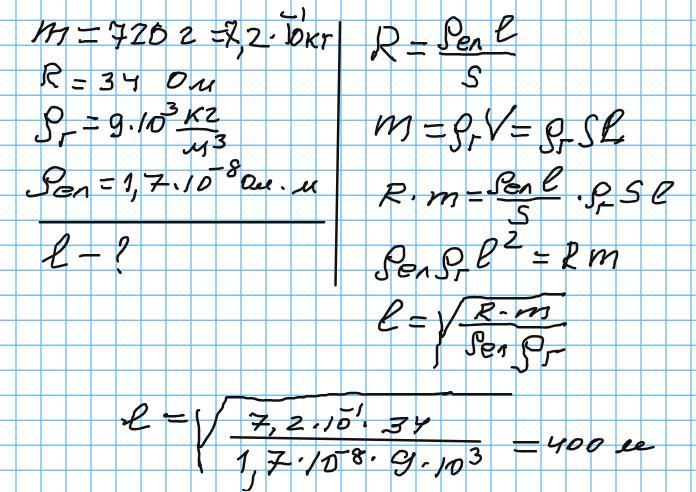 m = 720 г = 7,2·10⁻¹ кг
R = 34 Ом
ρг = 9·10³ кг/м³
ρел = 1,7·10⁻⁸ Ом·м
l - ?
R = ρел l / S
m = ρг V = ρг S l
R·m = ρел l / S · ρг S l
ρел ρг l² = R m
l = √(R·m / ρел ρг)
l = √(7,2·10⁻¹·34 / 1,7·10⁻⁸·9·10³) = 400 м